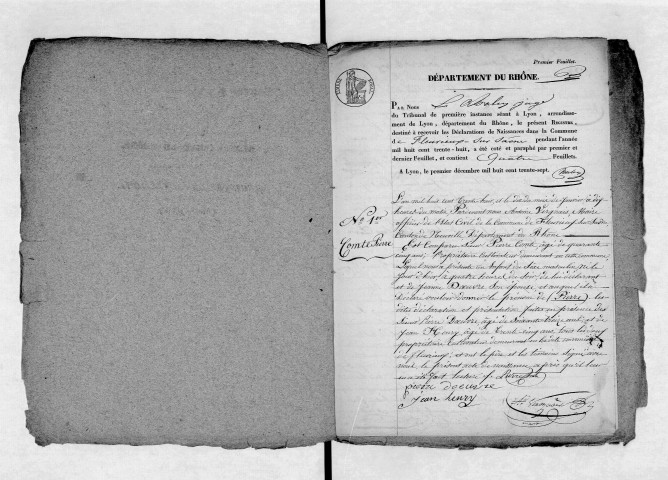 Premier Feuillet.
DÉPARTEMENT DU RHÔNE.
PAR NOUS juge
du Tribunal de première instance séant à Lyon, arrondisse-
ment de Lyon, département du Rhône, le présent REGISTRE,
destiné à recevoir les Déclarations de Naissances dans la Commune
de Fleurieux sur Saone pendant l'année
mil huit cent trente-huit, a été coté et paraphé par premier et
dernier Feuillet, et contient Quatre Feuillets.
A Lyon, le premier décembre mil huit cent trente-sept.
N° 1er
Comte Pierre
L'an mil huit cent trente huit, et le dix du mois de janvier à dix
heures du matin Pardevant nous Antoine Maire
officier de l'Etat Civil de la Commune de Fleurieux
Canton de Neuville Département du Rhône
Est Comparu sieur Pierre Comte âgé de quarante
cinq ans, Propriétaire Cultivateur demeurant en cette commune
Lequel nous a présenté un Enfant du Sexe masculin né le
jour d'hier à quatre heures du soir, de lui déclarant
et de Doeuvre son épouse et auquel il a
déclaré vouloir donner le prénom de (Pierre) les
dites déclaration et présentation faites en présence des
sieurs Pierre Doeuvre âgé de soixante ans, et de
Jean Henry âgé de trente cinq ans tous les
propriétaires Cultivateurs demeurant
de Fleurieux, et ont le père et les témoins signé avec
nous le présent acte de naissance après qu'il leur
en a été fait lecture
pierre doeuvre
Jean henry